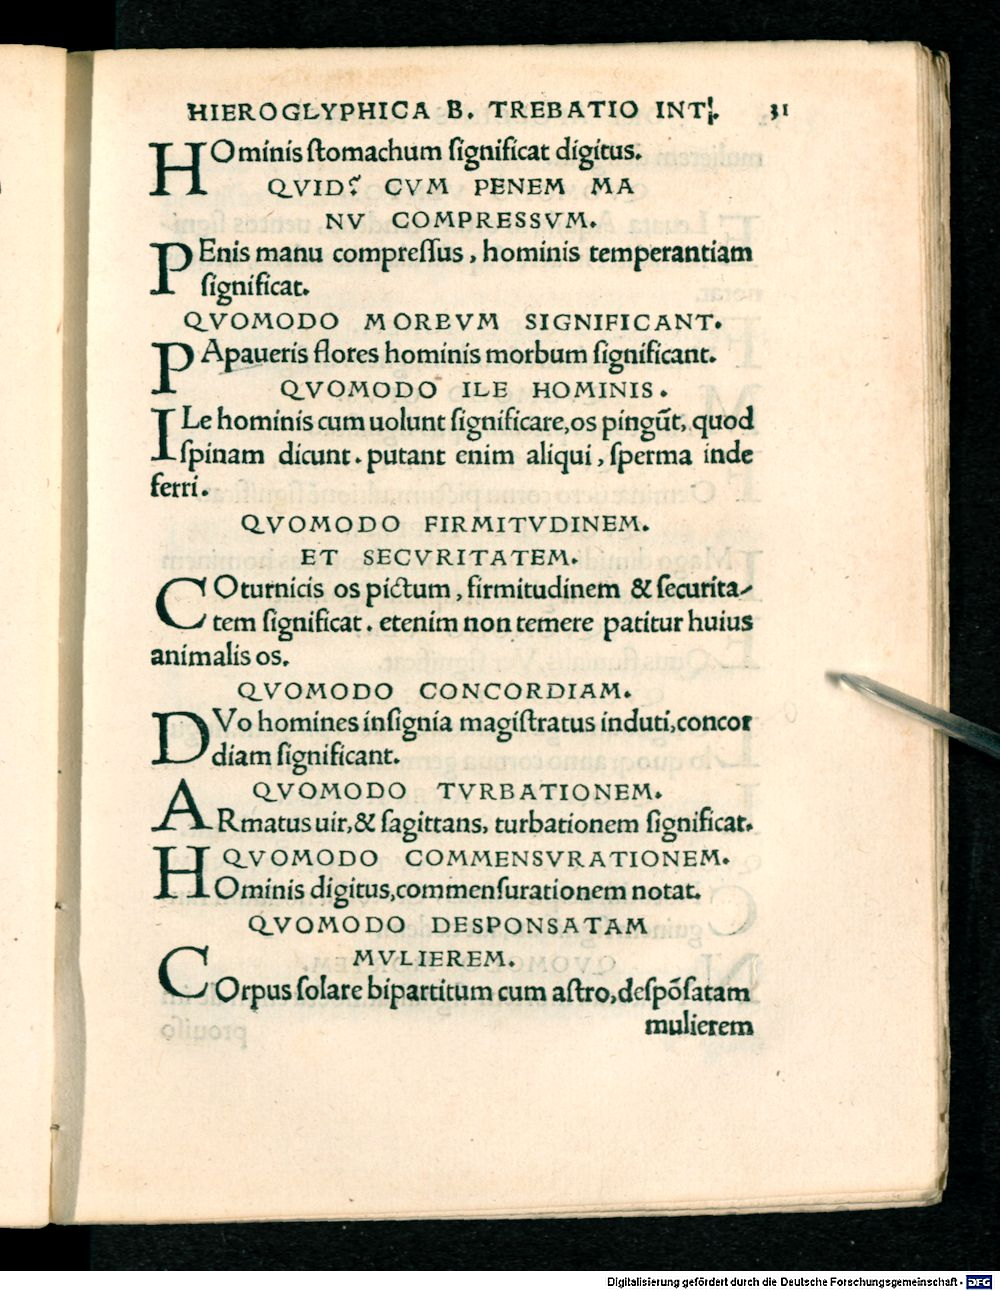 HIEROGLYPHICA B. TREBATIO INT. 31
HOminis ſtomachum ſignificat digitus.
QVID? CVM PENEM MA
NV COMPRESSVM.
PEnis manu compreſſus, hominis temperantiam
ſignificat.
QVOMODO MORBVM SIGNIFICANT.
PApaueris flores hominis morbum ſignificant.
QVOMODO ILE HOMINIS.
ILe hominis cum uolunt ſignificare, os pingūt, quod
ſpinam dicunt. putant enim aliqui, ſperma inde
ferri.
QVOMODO FIRMITVDINEM.
ET SECVRITATEM.
COturnicis os pictum, firmitudinem & ſecurita-
tem ſignificat. etenim non temere patitur huius
animalis os.
QVOMODO CONCORDIAM.
DVo homines inſignia magiſtratus induti, concor
diam ſignificant.
QVOMODO TVRBATIONEM.
ARmatus uir, & ſagittans, turbationem ſignificat.
QVOMODO COMMENSVRATIONEM.
HOminis digitus, commenſurationem notat.
QVOMODO DESPONSATAM
MVLIEREM.
COrpus ſolare bipartitum cum aſtro, deſpōſatam
mulierem
Digitalisierung gefördert durch die Deutsche Forschungsgemeinschaft - DFG